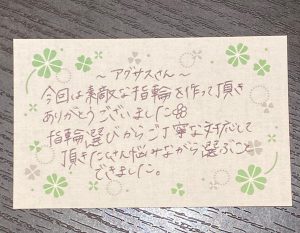 ～アグサスさん～
今回は素敵な指輪を作って頂き
ありがとうございました
指輪選びからご丁寧な対応して
頂きたくさん悩みながら選ぶこと
できました。